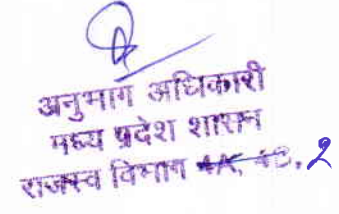 अनुभाग अधिकारी
मध्य प्रदेश शासन
राजस्व विभाग 4A, 4C, 2